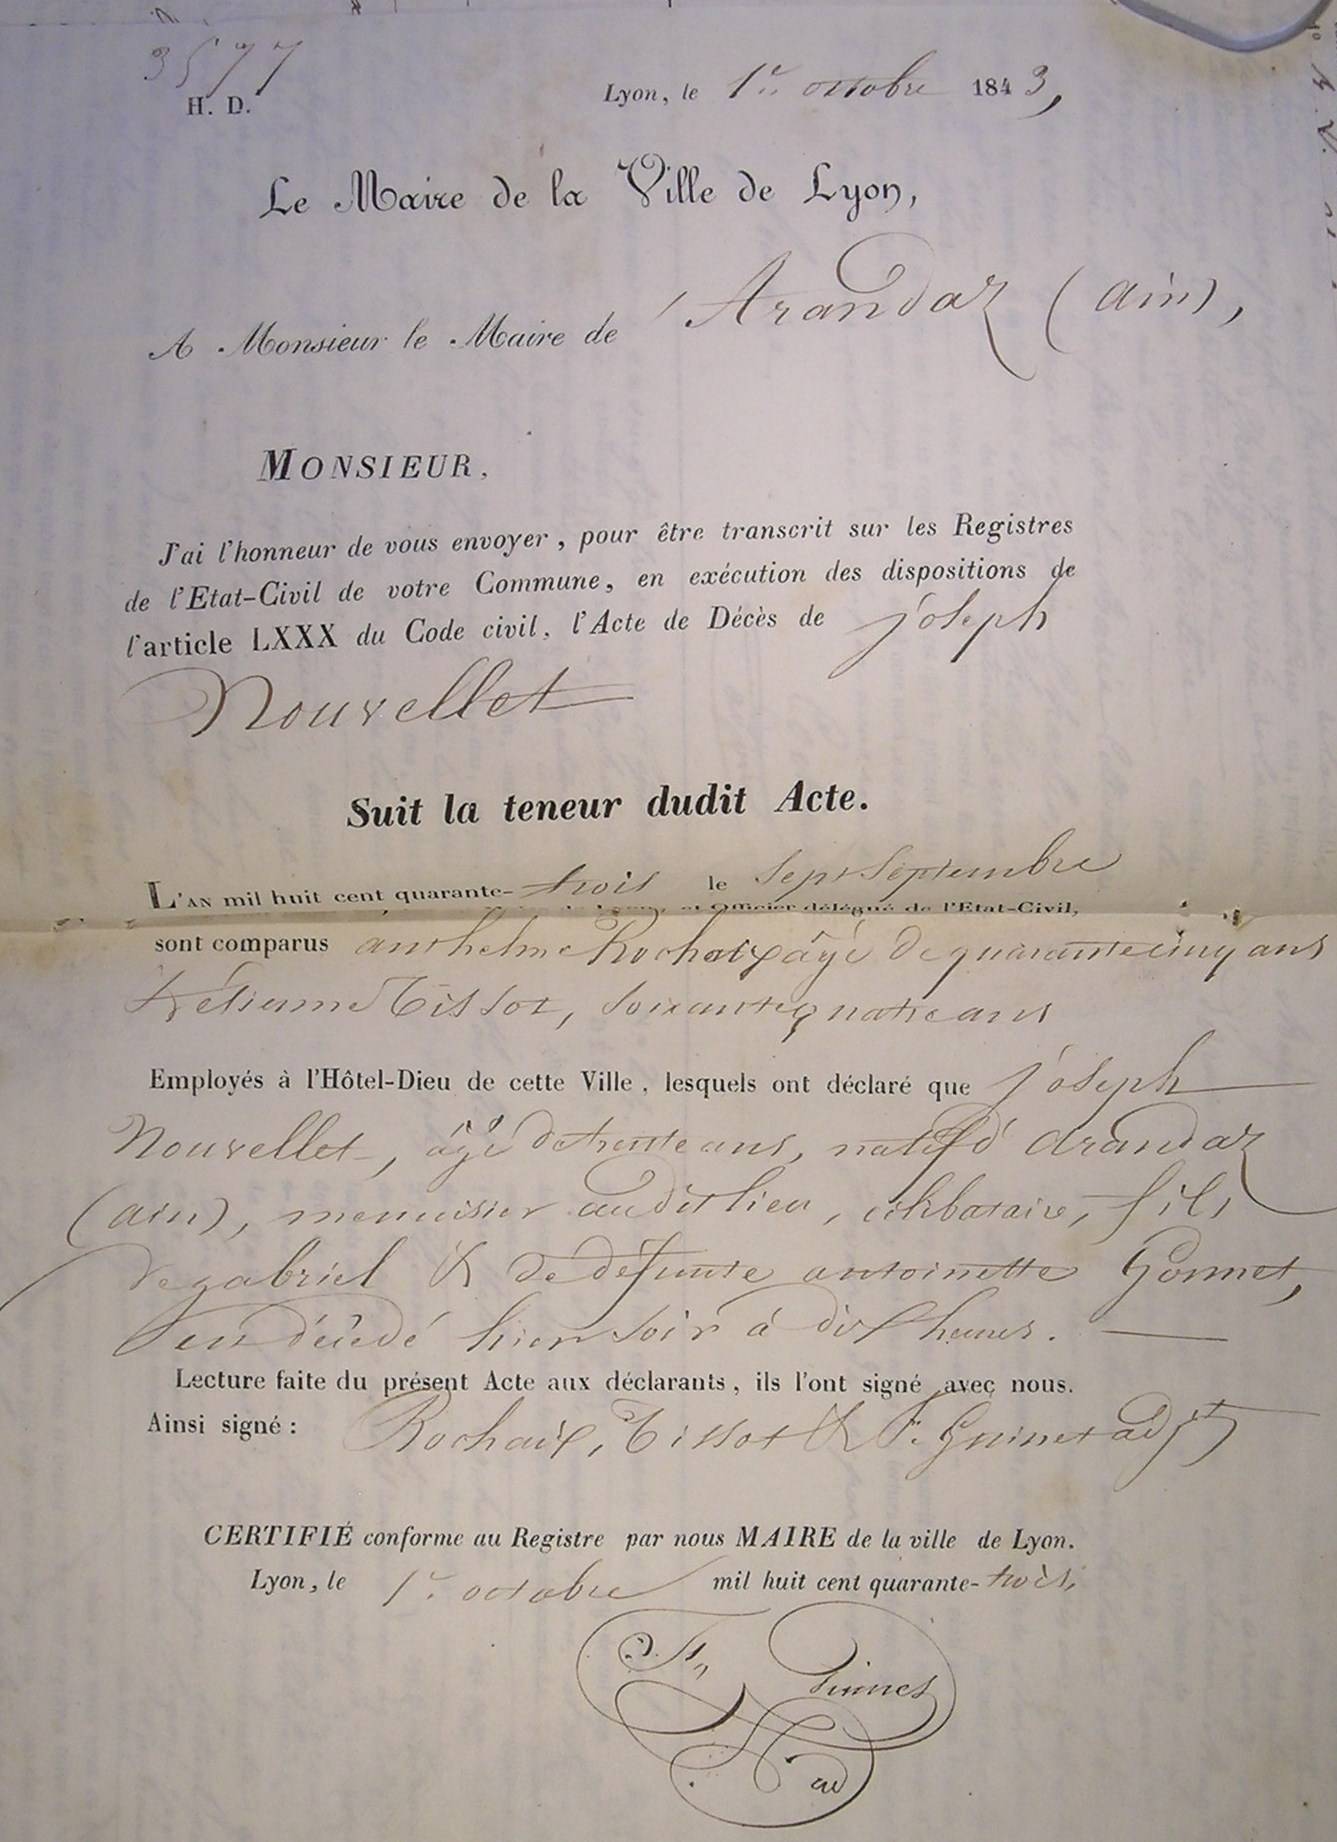 3577
H. D.
Lyon, le 1er octobre 1843,
Le Maire de la Ville de Lyon,
A Monsieur le Maire de Arandaz (ain),
MONSIEUR,
J'ai l'honneur de vous envoyer, pour être transcrit sur les Registres
de l'Etat-Civil de votre Commune, en exécution des dispositions de
l'article LXXX du Code civil, l'Acte de Décès de joseph
Nouvellet
Suit la teneur dudit Acte.
L'AN mil huit cent quarante-trois le sept Septembre
et Officier délégué de l'Etat-Civil,
sont comparus anthelme Rochaix âgé de quarante cinq ans
& étienne Tissot, soixante quatre ans
Employés à l'Hôtel-Dieu de cette Ville, lesquels ont déclaré que joseph
Nouvellet, âgé de trente ans, natif d'arandaz
(ain), menuisier audit lieu, célibataire, fils
de gabriel & de défunte antoinette Gonnet,
en décédé hier soir à dix heures.
Lecture faite du présent Acte aux déclarants, ils l'ont signé avec nous.
Ainsi signé : Rochaix, Tissot & F. Guinet adjt
CERTIFIÉ conforme au Registre par nous MAIRE de la ville de Lyon.
Lyon, le 1er octobre mil huit cent quarante-trois,